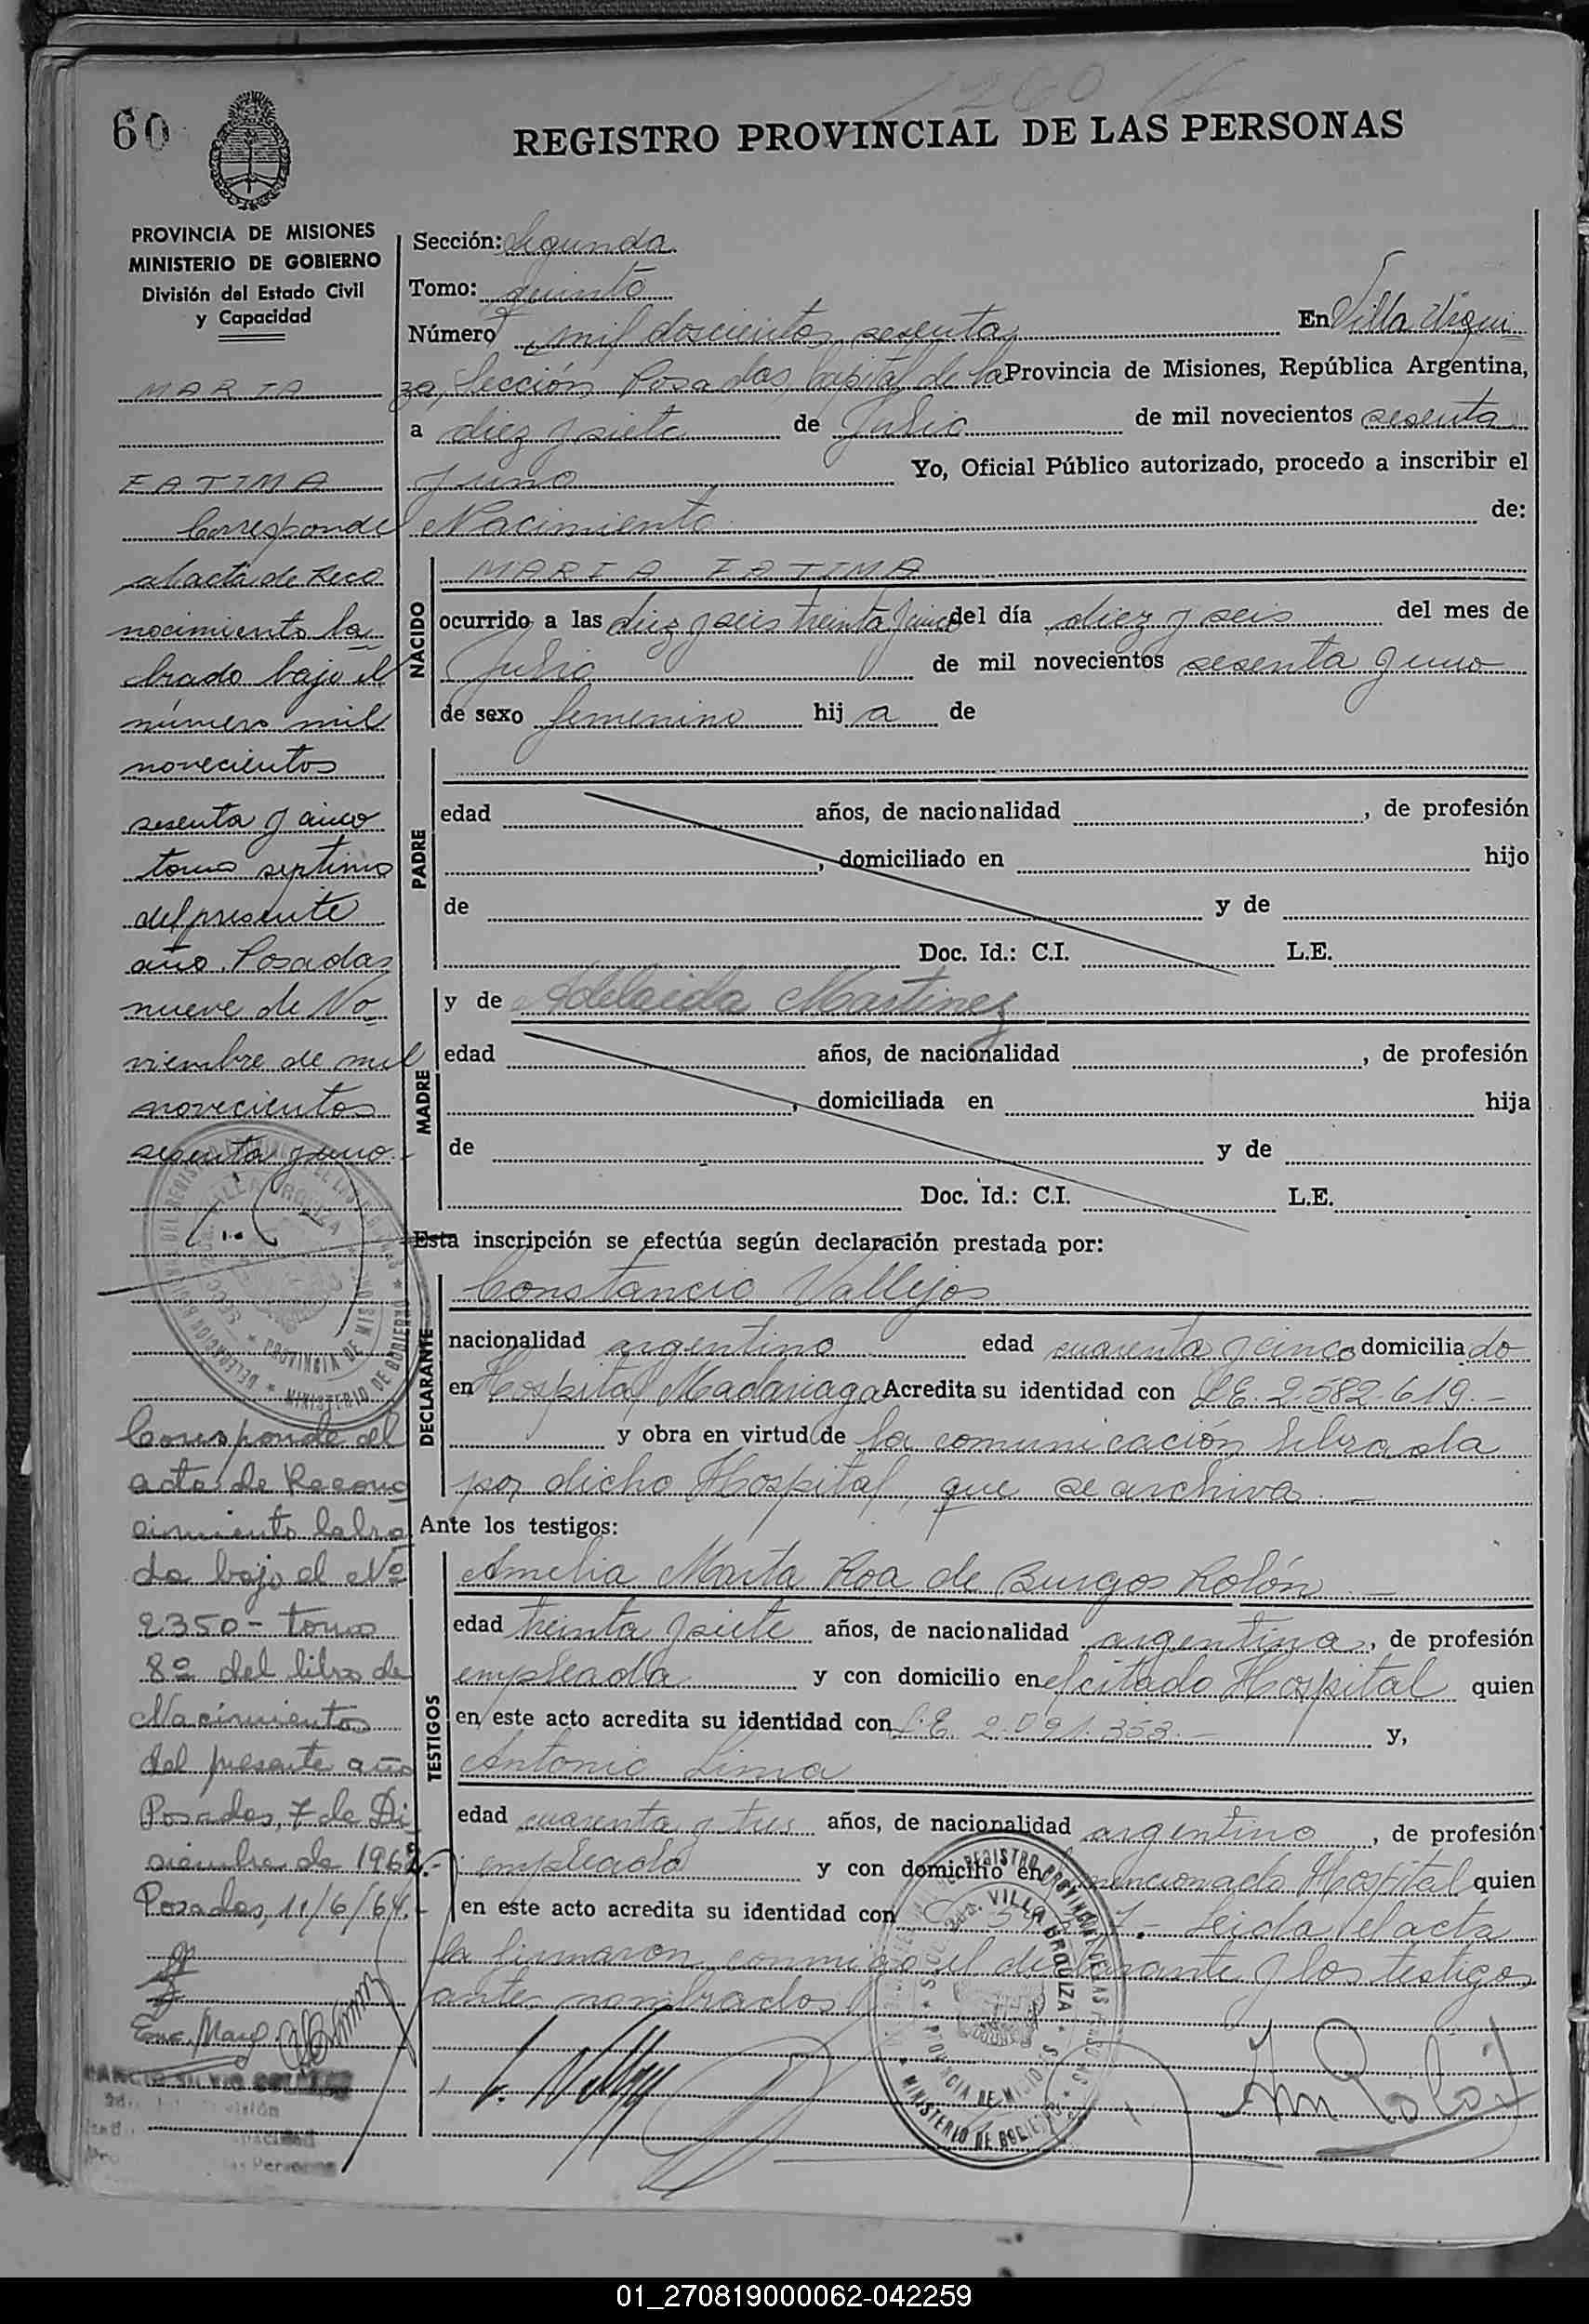 60
REGISTRO PROVINCIAL DE LAS PERSONAS
PROVINCIA DE MISIONES
MINISTERIO DE GOBIERNO
División del Estado Civil
y Capacidad
MARIA
FATIMA
Corresponde
al acta de Reco
nocimiento la
brado bajo el
número mil
novecientos
sesenta y cinco
tomo septimo
del presente
año. Posadas
nueve de No
viembre de mil
novecientos
sesenta y uno.-
Corresponde al
acta de Recono
cimiento labra
da bajo el Nº
2350- tomo
8º del libro de
Nacimientos
del presente año
Posadas, 7 de Di
ciembre de 1962.-
Posadas, 11/6/64.-
Sección: Segunda
Tomo: quinto
Número mil doscientos sesenta En Villa Urqui
za, Sección, Posadas, Capital de la Provincia de Misiones, República Argentina,
a diez y siete de Julio de mil novecientos sesenta
y uno Yo, Oficial Público autorizado, procedo a inscribir el
Nacimiento de:
NACIDO
MARIA FATIMA
ocurrido a las diez y seis treinta y cinco del día diez y seis del mes de
Julio de mil novecientos sesenta y uno
de sexo femenino hij a de
PADRE
edad años, de nacionalidad , de profesión
, domiciliado en hijo
de y de
Doc. Id.: C.I. L.E.
MADRE
y de Adelaida Martinez
edad años, de nacionalidad , de profesión
, domiciliada en hija
de y de
Doc. Id.: C.I. L.E.
Esta inscripción se efectúa según declaración prestada por:
DECLARANTE
Constancio Vallejos
nacionalidad argentino edad cuarenta y cinco domicilia do
en Hospital Madariaga Acredita su identidad con L.E. 2.582.619.-
y obra en virtud de la comunicación librada
por dicho Hospital, que se archiva.-
Ante los testigos:
TESTIGOS
Amelia Marta Roa de Burgos Rolón.-
edad treinta y siete años, de nacionalidad argentina, de profesión
empleada y con domicilio en el citado Hospital quien
en este acto acredita su identidad con L.E. 2.091.353.- y,
Antonio Lima
edad cuarenta y tres años, de nacionalidad argentino , de profesión
empleado y con domicilio en mencionado Hospital quien
en este acto acredita su identidad con Leida el acta
la firmaron conmigo el declarante y los testigos
antes nombrados
VILLA URQUIZA
PROVINCIA DE MISIONES
MINISTERIO DE GOBIERNO
01_270819000062-042259